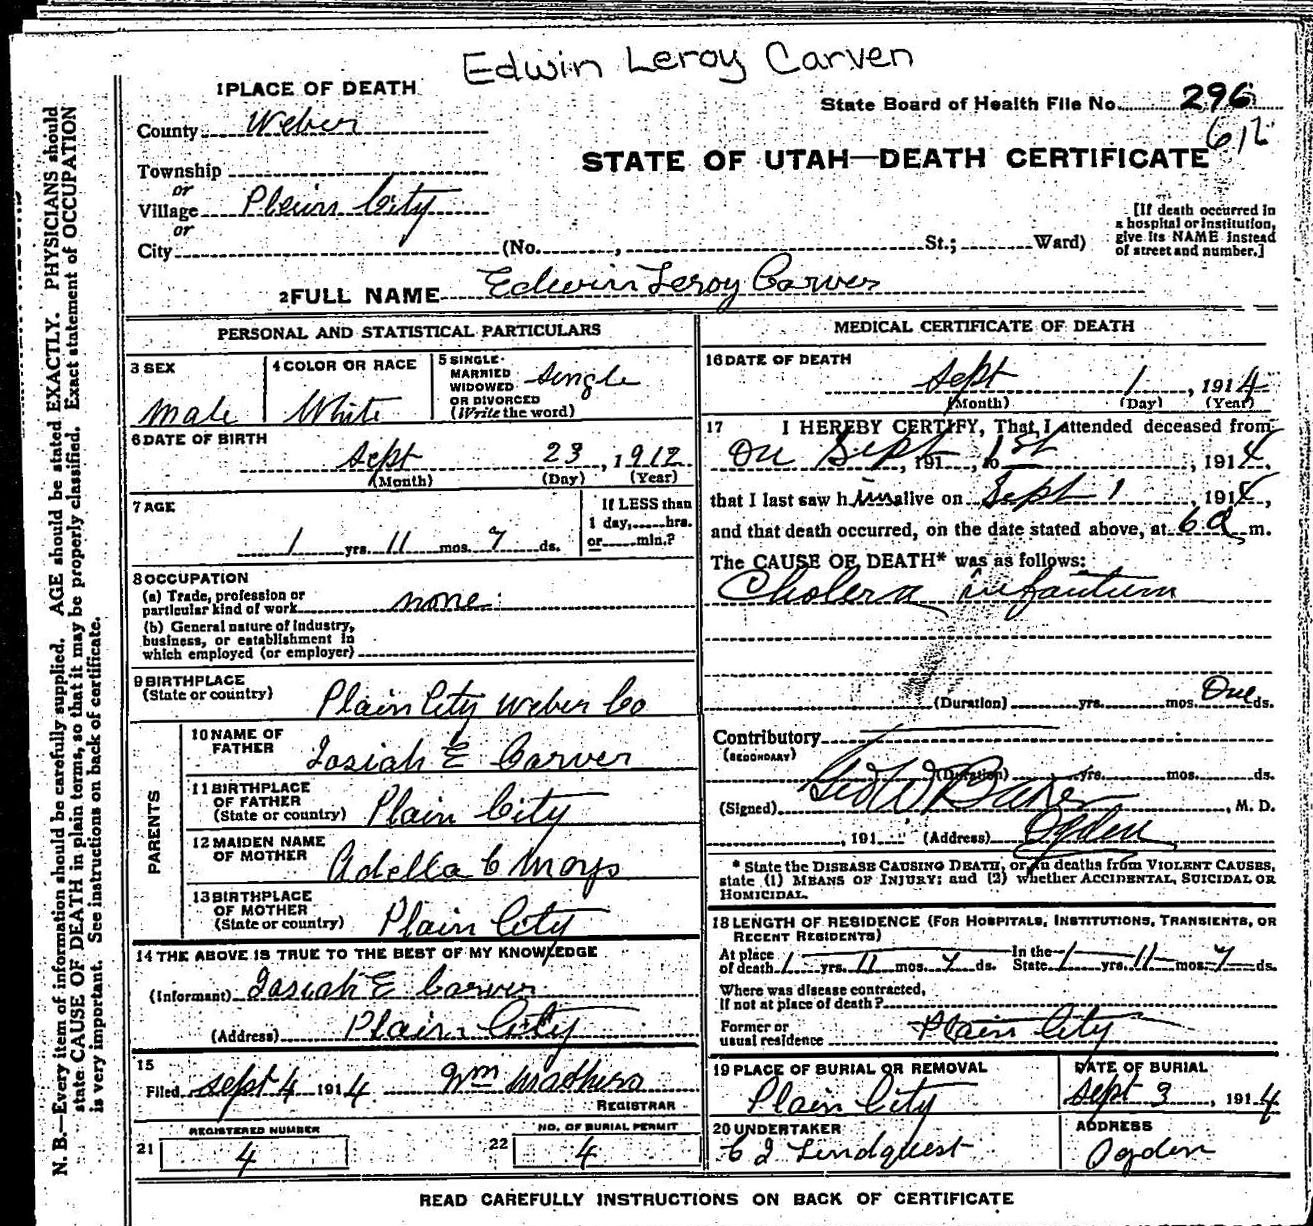 Edwin Leroy Carven
1 PLACE OF DEATH
State Board of Health File No. 296
612
County Weber
STATE OF UTAH—DEATH CERTIFICATE
Township
or
Village Plain City
or
City (No. , St.; Ward)
[If death occurred in
a hospital or institution,
give its NAME instead
of street and number.]
2 FULL NAME Edwin Leroy Carver
PERSONAL AND STATISTICAL PARTICULARS
3 SEX
Male
4 COLOR OR RACE
White
5 SINGLE
MARRIED
WIDOWED
OR DIVORCED
(Write the word)
Single
6 DATE OF BIRTH
Sept 23, 1912
(Month) (Day) (Year)
7 AGE
1 yrs. 11 mos. 7 ds.
If LESS than
1 day, hrs.
or min.?
8 OCCUPATION
(a) Trade, profession or
particular kind of work none
(b) General nature of industry,
business, or establishment in
which employed (or employer)
9 BIRTHPLACE
(State or country) Plain City Weber Co
PARENTS
10 NAME OF
FATHER Josiah E Carver
11 BIRTHPLACE
OF FATHER
(State or country) Plain City
12 MAIDEN NAME
OF MOTHER Adella C
13 BIRTHPLACE
OF MOTHER
(State or country) Plain City
14 THE ABOVE IS TRUE TO THE BEST OF MY KNOWLEDGE
(Informant) Josiah E Carver
(Address) Plain City
15
Filed Sept 4 1914 Wm
REGISTRAR
21 REGISTERED NUMBER
4
22 NO. OF BURIAL PERMIT
4
MEDICAL CERTIFICATE OF DEATH
16 DATE OF DEATH
Sept 1, 1914
(Month) (Day) (Year)
17 I HEREBY CERTIFY, That I attended deceased from
On Sept, 191 , to 1st, 1914,
that I last saw him alive on Sept 1, 1914,
and that death occurred, on the date stated above, at 6 a m.
The CAUSE OF DEATH* was as follows:
Cholera infantum
(Duration) yrs. mos. One ds.
Contributory
(SECONDARY)
(Duration) yrs. mos. ds.
(Signed) Geo W Baker, M. D.
, 191 (Address) Ogden
* State the DISEASE CAUSING DEATH, or, in deaths from VIOLENT CAUSES,
state (1) MEANS OF INJURY; and (2) whether ACCIDENTAL, SUICIDAL OR
HOMICIDAL.
18 LENGTH OF RESIDENCE (FOR HOSPITALS, INSTITUTIONS, TRANSIENTS, OR
RECENT RESIDENTS)
At place
of death 1 yrs. 11 mos. 7 ds. In the
State 1 yrs. 11 mos. 7 ds.
Where was disease contracted,
if not at place of death?
Former or
usual residence Plain City
19 PLACE OF BURIAL OR REMOVAL
Plain City
DATE OF BURIAL
Sept 3, 1914
20 UNDERTAKER
C J Lindquest
ADDRESS
Ogden
READ CAREFULLY INSTRUCTIONS ON BACK OF CERTIFICATE
N. B.—Every item of information should be carefully supplied. AGE should be stated EXACTLY. PHYSICIANS should
state CAUSE OF DEATH in plain terms, so that it may be properly classified. Exact statement of OCCUPATION
is very important. See instructions on back of certificate.